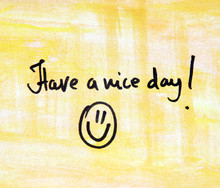 Have a nice day!